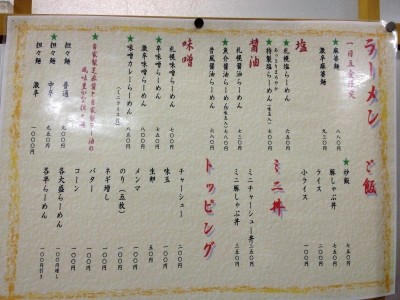 ラーメン
ご飯
一日五食限定
★麻婆麺 八八〇円
激辛麻婆麺
塩
★札幌塩らーめん 六五〇円
醤油
札幌醤油らーめん
魚介醤油らーめん
昔風醤油らーめん
味噌
札幌味噌らーめん 七〇〇円
★辛味噌らーめん 七五〇円
激辛味噌らーめん 八〇〇円
★味噌カレーらーめん 八五〇円
(ミニライス付)
自家製芝麻醤と自家製ラー油の
風味豊かな担々麺
★担々麺 普通
担々麺 中辛
担々麺 激辛 一〇〇〇円
★炒飯 七五〇円
豚しゃぶ丼
ライス 二〇〇円
小ライス 一〇〇円
ミニ丼
ミニチャーシュー丼 三五〇円
ミニ豚しゃぶ丼 三五〇円
トッピング
チャーシュー 二〇〇円
味玉 一〇〇円
生卵 五〇円
メンマ 一〇〇円
のり(五枚) 一〇〇円
ネギ増し 一〇〇円
バター 一〇〇円
コーン 一〇〇円
各大盛らーめん 一〇〇円増し
各半らーめん 一〇〇円引き